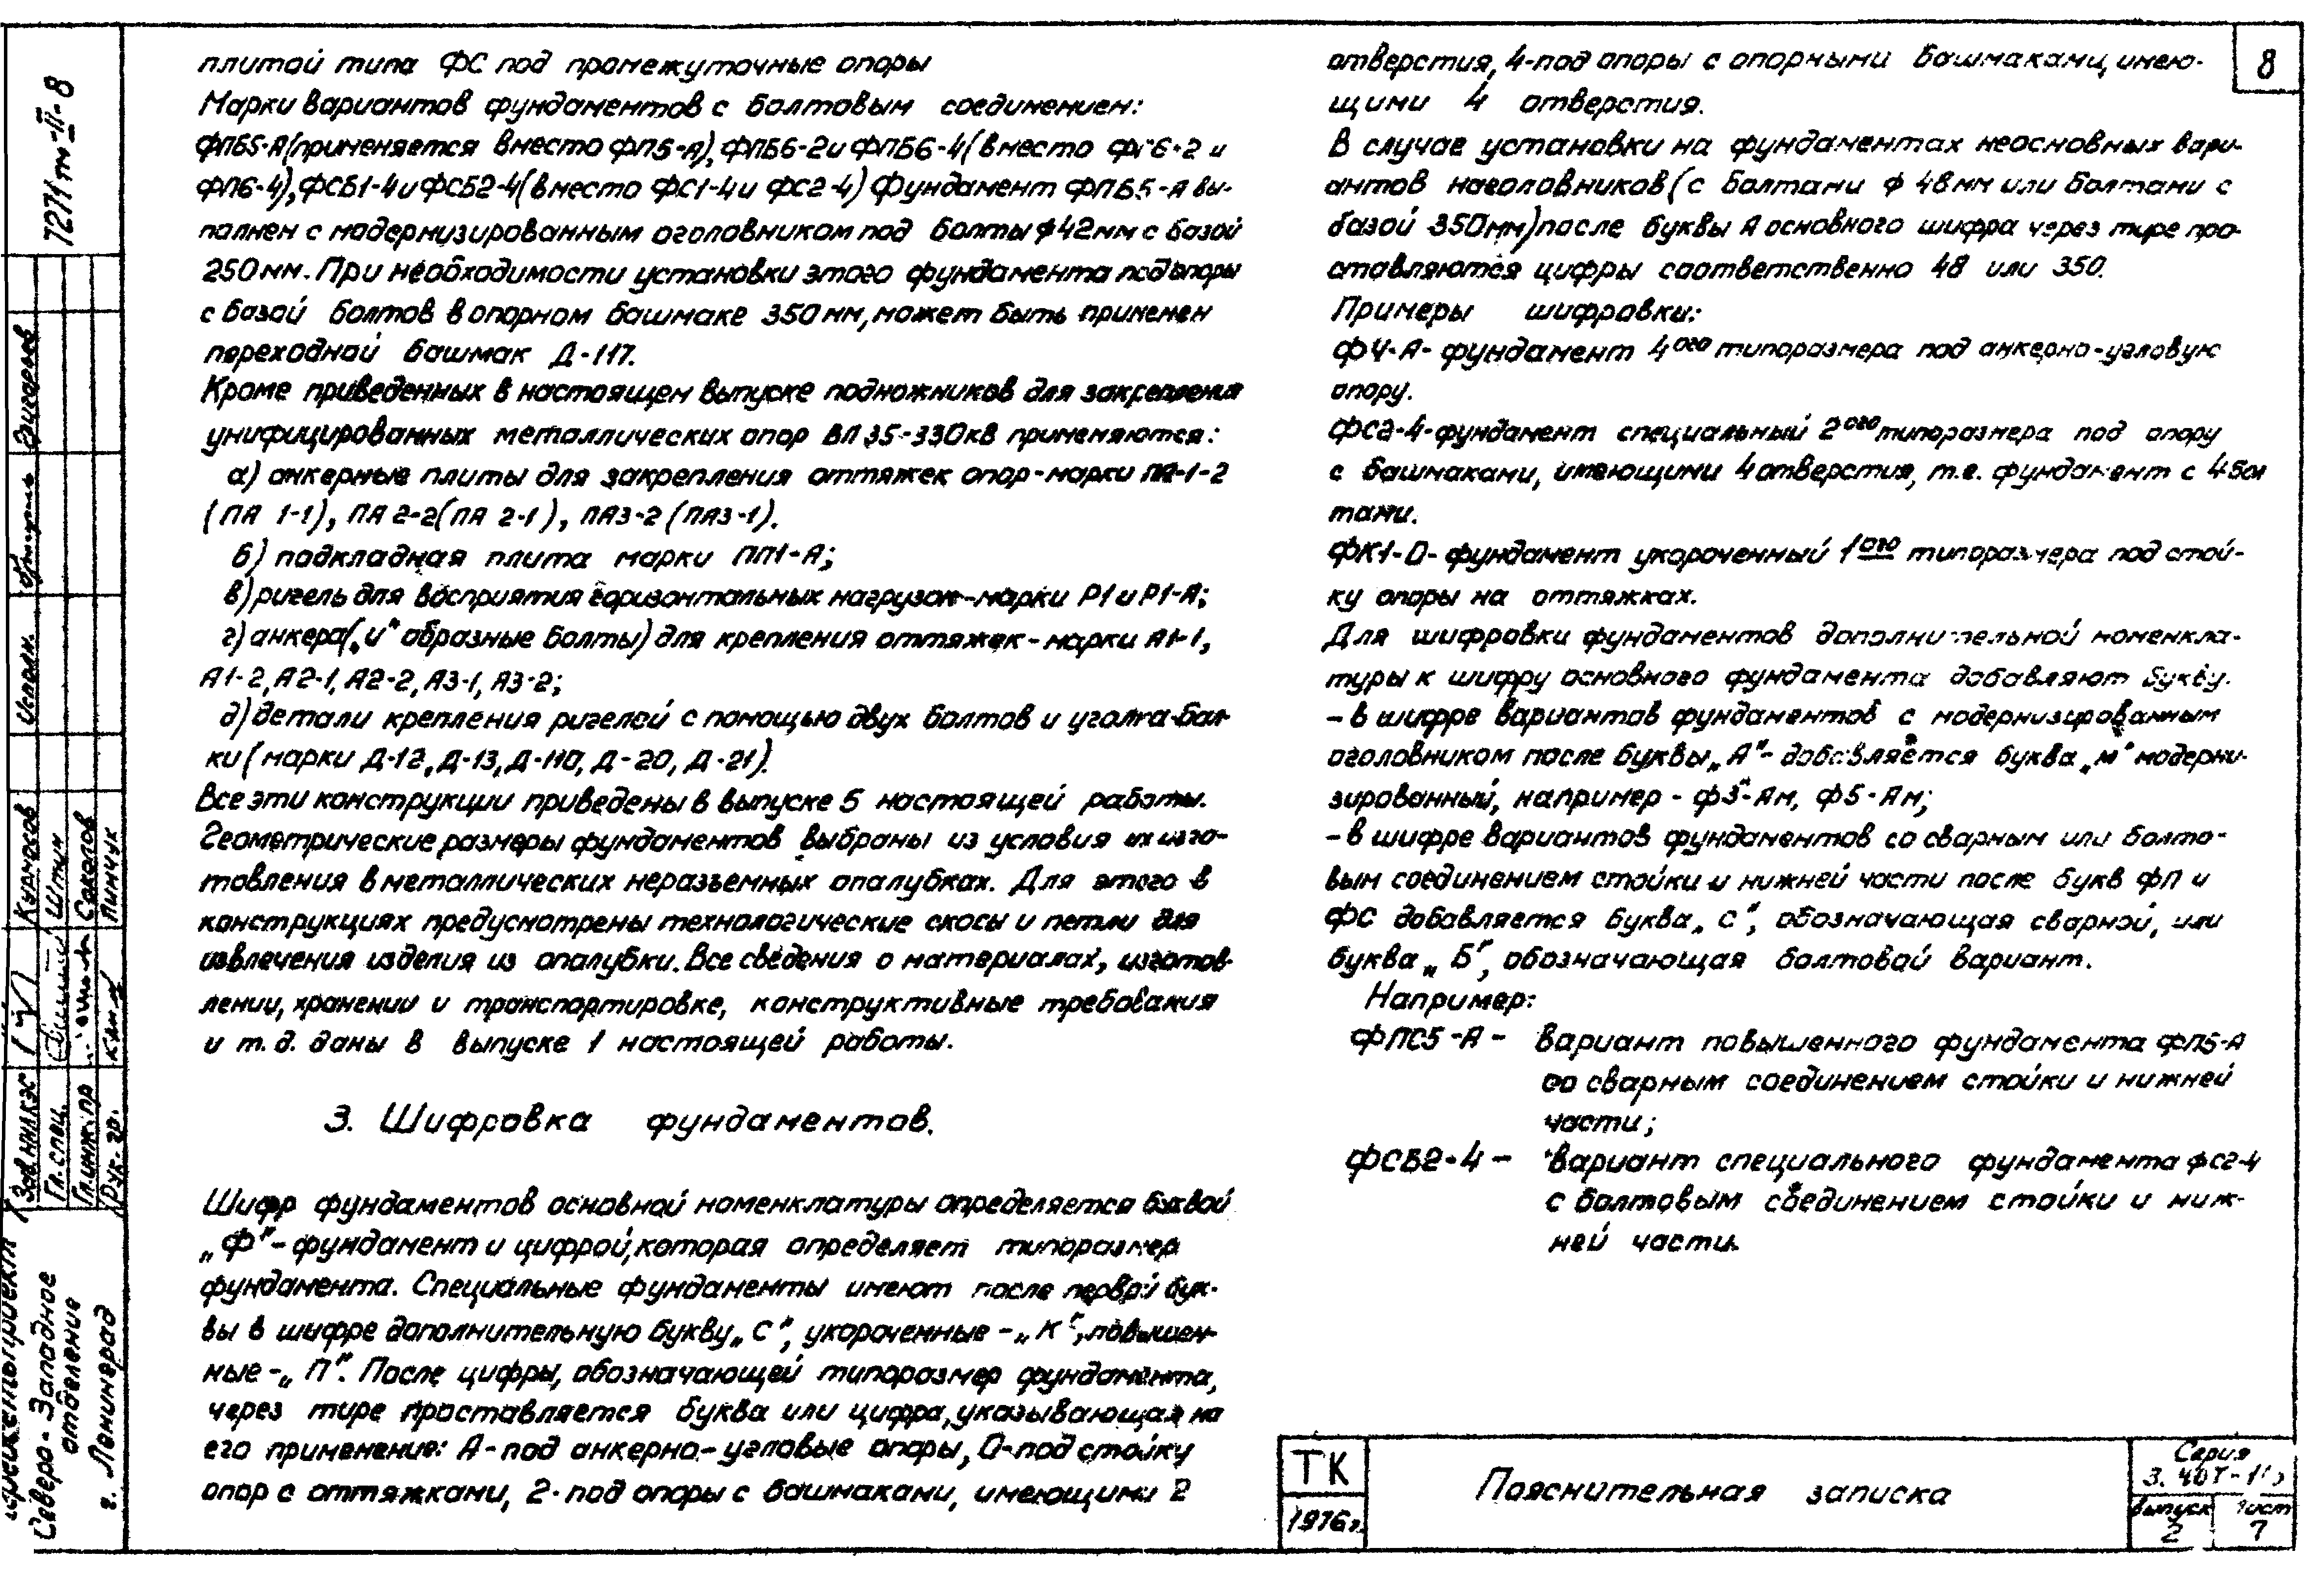 плитой типа ФС под промежуточные опоры
Марки вариантов фундаментов с болтовым соединением:
ФПБ5-А (применяется вместо ФП5-А), ФПБ6-2 и ФПБ6-4 (вместо ФП6-2 и
ФП6-4), ФСБ1-4 и ФСБ2-4 (вместо ФС1-4 и ФС2-4) Фундамент ФПБ5-А вы-
полнен с модернизированным оголовником под болты ϕ42мм с базой
250мм. При необходимости установки этого фундамента под опоры
с базой болтов в опорном башмаке 350мм, может быть применен
переходной башмак Д-117.
Кроме приведенных в настоящем выпуске подножников для закрепления
унифицированных металлических опор ВЛ 35-330кв применяются:
а) анкерные плиты для закрепления оттяжек опор-марки ПА-1-2
(ПА 1-1), ПА 2-2 (ПА 2-1), ПА3-2 (ПА3-1).
б) подкладная плита марки ПП1-А;
в) ригель для восприятия горизонтальных нагрузок-марки Р1 и Р1-А;
г) анкера („U" образные болты) для крепления оттяжек - марки А1-1,
А1-2, А2-1, А2-2, А3-1, А3-2;
д) детали крепления ригелей с помощью двух болтов и уголка-бал-
ки (марки Д-12, Д-13, Д-110, Д-20, Д-21).
Все эти конструкции приведены в выпуске 5 настоящей работы.
Геометрические размеры фундаментов выбраны из условия их изго-
товления в металлических неразъемных опалубках. Для этого в
конструкциях предусмотрены технологические скосы и петли для
извлечения изделия из опалубки. Все сведения о материалах, изготов-
лении, хранении и транспортировке, конструктивные требования
и т.д. даны в выпуске 1 настоящей работы.
3. Шифровка фундаментов.
Шифр фундаментов основной номенклатуры определяется буквой
„Ф" - фундамент и цифрой, которая определяет типоразмер
фундамента. Специальные фундаменты имеют после первой бук-
вы в шифре дополнительную букву „С", укороченные - „К", повышен-
ные - „П". После цифры, обозначающей типоразмер фундамента,
через тире проставляется буква или цифра, указывающая на
его применение: А - под анкерно-угловые опоры, О-под стойку
опор с оттяжками, 2-под опоры с башмаками, имеющими 2
отверстия, 4-под опоры с опорными башмаками, имею-
щими 4 отверстия.
В случае установки на фундаментах неосновных вари-
антов наголовников (с болтами ϕ 48мм или болтами с
базой 350мм) после буквы А основного шифра через тире про-
ставляются цифры соответственно 48 или 350.
Примеры шифровки:
Ф4-А- фундамент 4ого типоразмера под анкерно-угловую
опору.
ФС2-4-фундамент специальный 2ого типоразмера под опору
с башмаками, имеющими 4 отверстия, т.е. фундамент с 4 бол
тами.
ФК1-О- фундамент укороченный 1ого типоразмера под стой-
ку опоры на оттяжках.
Для шифровки фундаментов дополнительной номенкла-
туры к шифру основного фундамента добавляют букву.
- в шифре вариантов фундаментов с модернизированным
оголовником после буквы „А"- добавляется буква „м" модерни-
зированный, например - Ф3-Ам, Ф5-Ам;
- в шифре вариантов фундаментов со сварным или болто-
вым соединением стойки и нижней части после букв ФП и
ФС добавляется буква „С", обозначающая сварной, или
буква „Б", обозначающая болтовой вариант.
Например:
ФПС5-А - вариант повышенного фундамента ФП5-А
со сварным соединением стойки и нижней
части;
ФСБ2-4 - вариант специального фундамента ФС2-4
с болтовым соединением стойки и ниж-
ней части.
8
7271тм-II-8
Исполн.
Зав. НИЛКЭС Курносов
Гл. спец. Штин
Гл. инж. пр Соколов
Рук. гр. Пинчук
Северо-Западное
отделение
г. Ленинград
ТК
1976г.
Пояснительная записка
Серия
выпуск
2
Лист
7